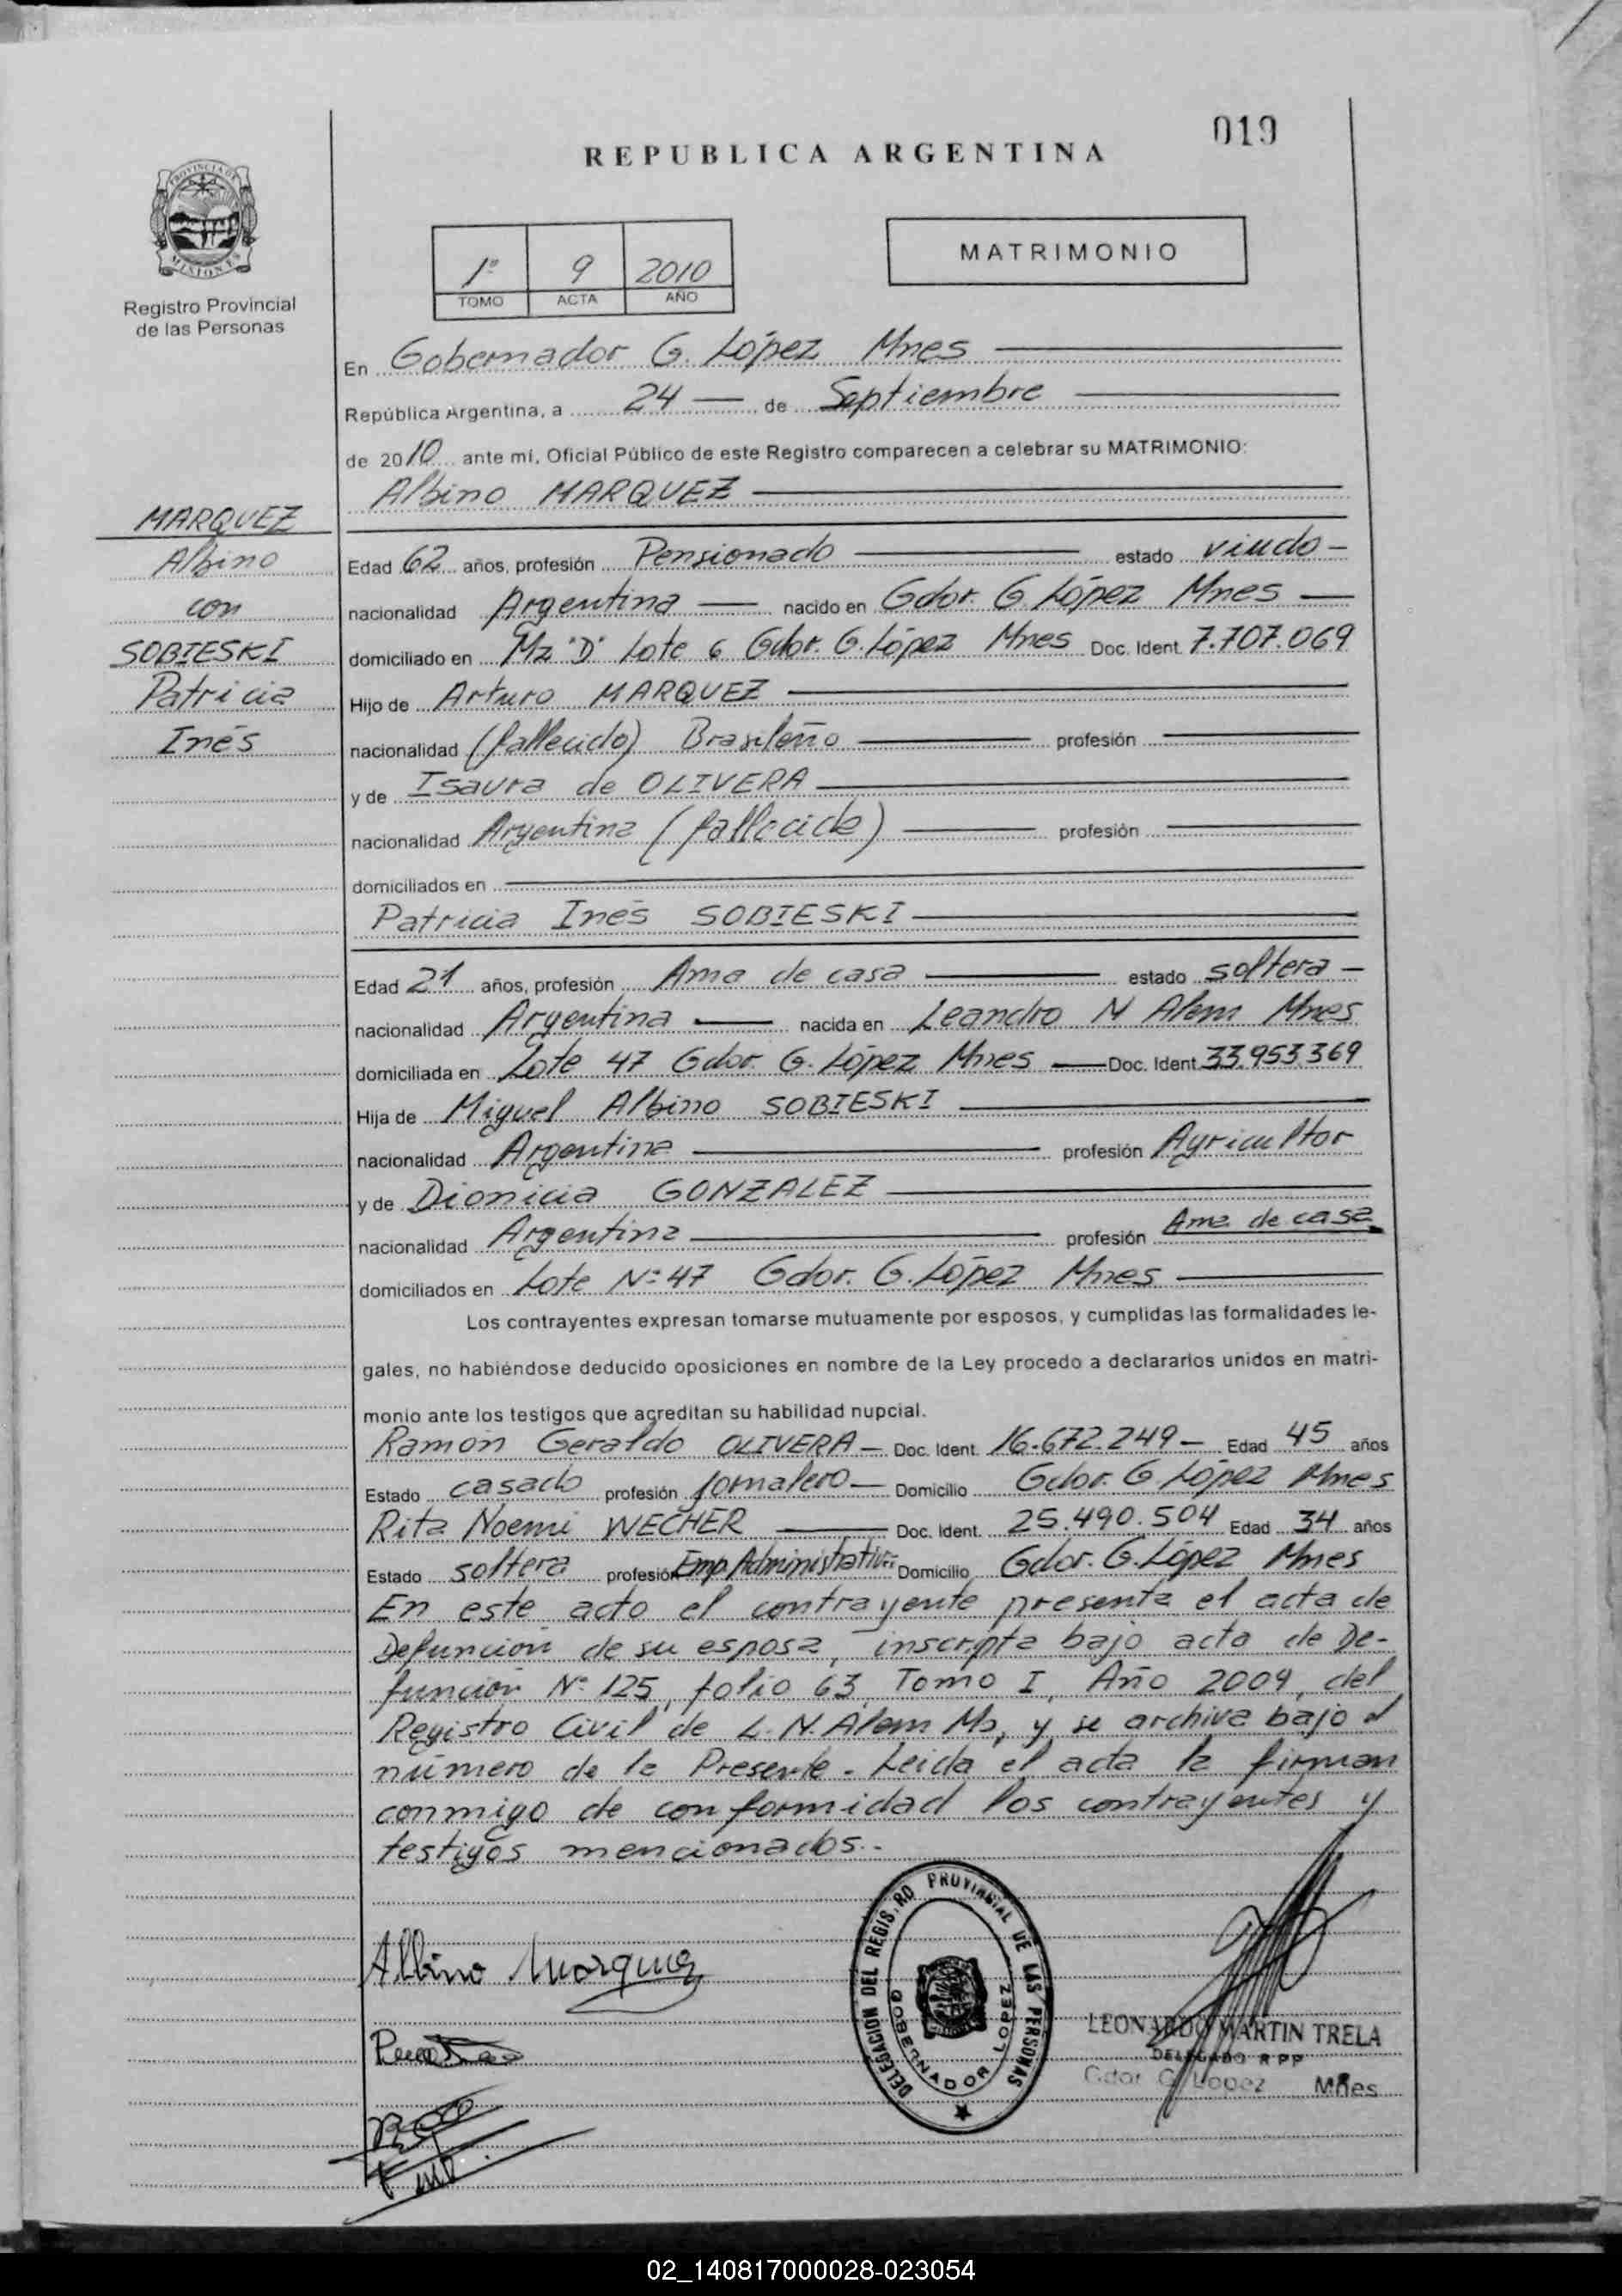 019
REPUBLICA ARGENTINA
PROVINCIA DE MISIONES
Registro Provincial
de las Personas
1º 9 2010
TOMO ACTA AÑO
MATRIMONIO
En Gobernador G. López Mnes
República Argentina, a 24 de Septiembre
de 2010 ante mí, Oficial Público de este Registro comparecen a celebrar su MATRIMONIO:
Albino MARQUEZ
MARQUEZ
Albino
con
SOBIESKI
Patricia
Inés
Edad 62 años, profesión Pensionado estado viudo -
nacionalidad Argentina nacido en Gdor. G López Mnes
domiciliado en Mz "D" Lote 6 Gdor. G. López Mnes Doc. Ident. 7.707.069
Hijo de Arturo MARQUEZ
nacionalidad (fallecido) Brasileño profesión
y de Isaura de OLIVERA
nacionalidad Argentina (fallecida) profesión
domiciliados en
Patricia Inés SOBIESKI
Edad 21 años, profesión Ama de casa estado soltera -
nacionalidad Argentina nacida en Leandro N Alem Mnes
domiciliada en Lote 47 Gdor. G. López Mnes Doc. Ident. 33.953.369
Hija de Miguel Albino SOBIESKI
nacionalidad Argentina profesión Agricultor
y de Dionicia GONZALEZ
nacionalidad Argentina profesión Ama de casa
domiciliados en Lote Nº 47 Gdor. G. López Mnes
Los contrayentes expresan tomarse mutuamente por esposos, y cumplidas las formalidades le-
gales, no habiéndose deducido oposiciones en nombre de la Ley procedo a declararlos unidos en matri-
monio ante los testigos que acreditan su habilidad nupcial.
Ramón Geraldo OLIVERA - Doc. Ident. 16.672.249 - Edad 45 años
Estado casado profesión Jornalero - Domicilio Gdor. G. López Mnes
Rita Noemi WECHER Doc. Ident. 25.490.504 Edad 34 años
Estado soltera profesión Emp. Administrativa Domicilio Gdor. G. López Mnes
En este acto el contrayente presenta el acta de
Defunción de su esposa, inscripta bajo acta de De-
función Nº 125, folio 63, Tomo I, Año 2009, del
Registro Civil de L. N. Alem Ms, y se archiva bajo el
número de la Presente - Leida el acta la firman
conmigo de conformidad los contrayentes y
testigos mencionados.-
Albino Marquez
DELEGACION DEL REGISTRO PROVINCIAL DE LAS PERSONAS
GOBERNADOR LOPEZ
LEONARDO MARTIN TRELA
DELEGADO RPP
Gdor G Lopez Mnes
02_140817000028-023054